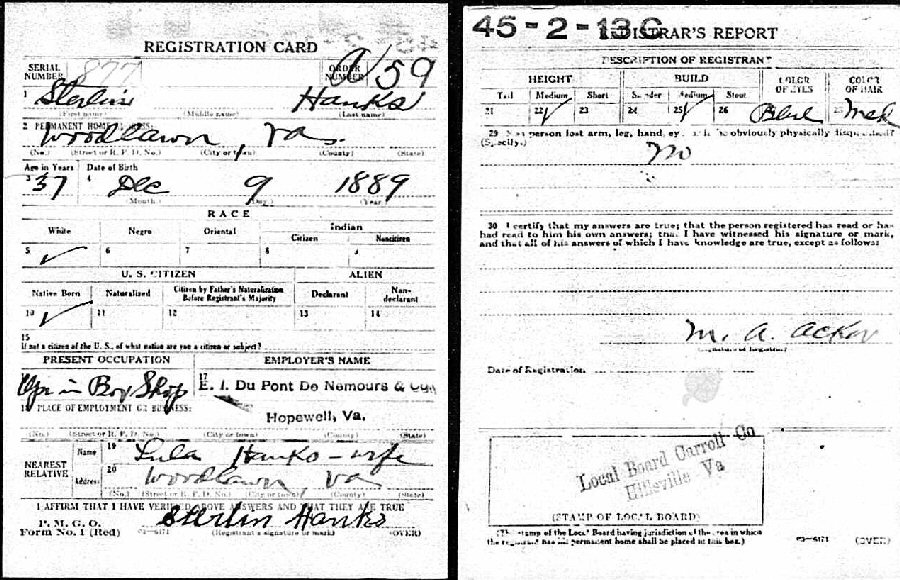 REGISTRATION CARD
SERIAL NUMBER 877
ORDER NUMBER A 159
1 Sterlin Hanks
(First name) (Middle name) (Last name)
2 PERMANENT HOME ADDRESS:
Woodlawn, Va.
(No.) (Street or R. F. D. No.) (City or town) (County) (State)
Age in Years Date of Birth
3 37 4 Dec 9 1889
(Month) (Day) (Year)
RACE
White Negro Oriental Indian
Citizen Noncitizen
5 ✓ 6 7 8 9
U. S. CITIZEN ALIEN
Native Born Naturalized Citizen by Father's Naturalization Before Registrant's Majority Declarant Non-declarant
10 ✓ 11 12 13 14
15
If not a citizen of the U. S., of what nation are you a citizen or subject?
PRESENT OCCUPATION EMPLOYER'S NAME
Opr in Box Shop 17 E. I. Du Pont De Nemours &
18 PLACE OF EMPLOYMENT OR BUSINESS:
Hopewell, Va.
(No.) (Street or R. F. D. No.) (City or town) (County) (State)
NEAREST RELATIVE
Name 19 Lula Hanks - wife
Address 20 Woodlawn, Va
(No.) (Street or R. F. D. No.) (City or town) (County) (State)
I AFFIRM THAT I HAVE VERIFIED ABOVE ANSWERS AND THAT THEY ARE TRUE
P. M. G. O.
Form No. 1 (Red) 03—6171 Sterlin Hanks
(Registrant's signature or mark) (OVER)
45-2-13 C
REGISTRAR'S REPORT
DESCRIPTION OF REGISTRANT
HEIGHT BUILD COLOR OF EYES COLOR OF HAIR
Tall Medium Short Slender Medium Stout
21 22 ✓ 23 24 25 ✓ 26 27 28
29 Has person lost arm, leg, hand, eye, or is he obviously physically disqualified?
(Specify.)
No
30 I certify that my answers are true; that the person registered has read or has
had read to him his own answers; that I have witnessed his signature or mark,
and that all of his answers of which I have knowledge are true, except as follows:
M. A.
(Signature of Registrar)
Date of Registration
Local Board Carroll Co
Hillsville Va
(STAMP OF LOCAL BOARD)
(The stamp of the Local Board having jurisdiction of the area in which
the registrant has his permanent home shall be placed in this box.)
03—6171 (OVER)